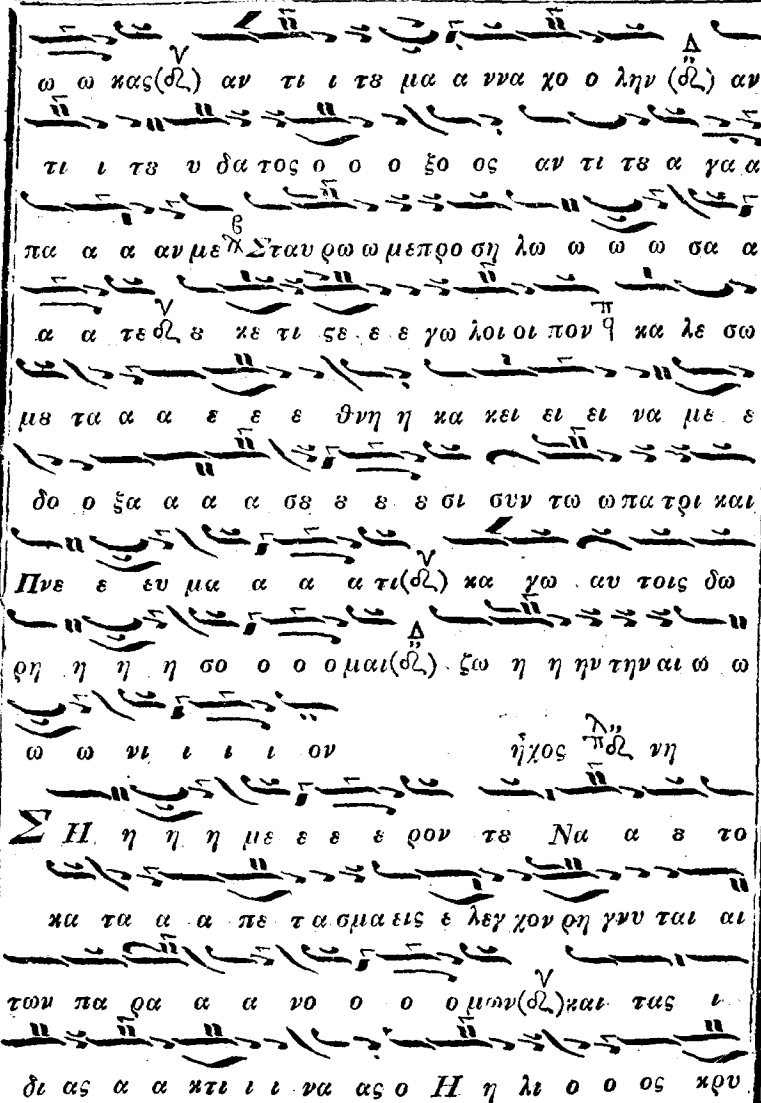 ω ω κας (ν) αν τι ι τȣ μα α ννα χο ο λην (Δ) αν
τι ι τȣ υ δα τος ο ο ο ξο ος αν τι τȣ α γα α
πα α α αν με Σταυ ρω ω με προ ση λω ω ω ω σα α
α α τε ȣ κε τι ϛε ε ε γω λοι οι πον κα λε σω
μȣ τα α α ε ε ε θνη η κα κει ει ει να με ε
δο ο ξα α α α σȣ ȣ ȣ ȣ σι συν τω ω πα τρι και
Πνε ε ευ μα α α α τι (ν) κα γω αυ τοις δω
ρη η η η σο ο ο ο μαι (Δ) ζω η η ην την αι ω ω
ω ω νι ι ι ι ον ἦχος νη
Σ Η η η η με ε ε ε ρον τȣ Να α ȣ το
κα τα α α πε τα σμα εις ε λεγ χον ρη γνυ ται αι
των πα ρα α α νο ο ο ο μων (ν) και τας ι
δι ας α α κτι ι ι να ας ο Η η λι ο ο ος κρυ